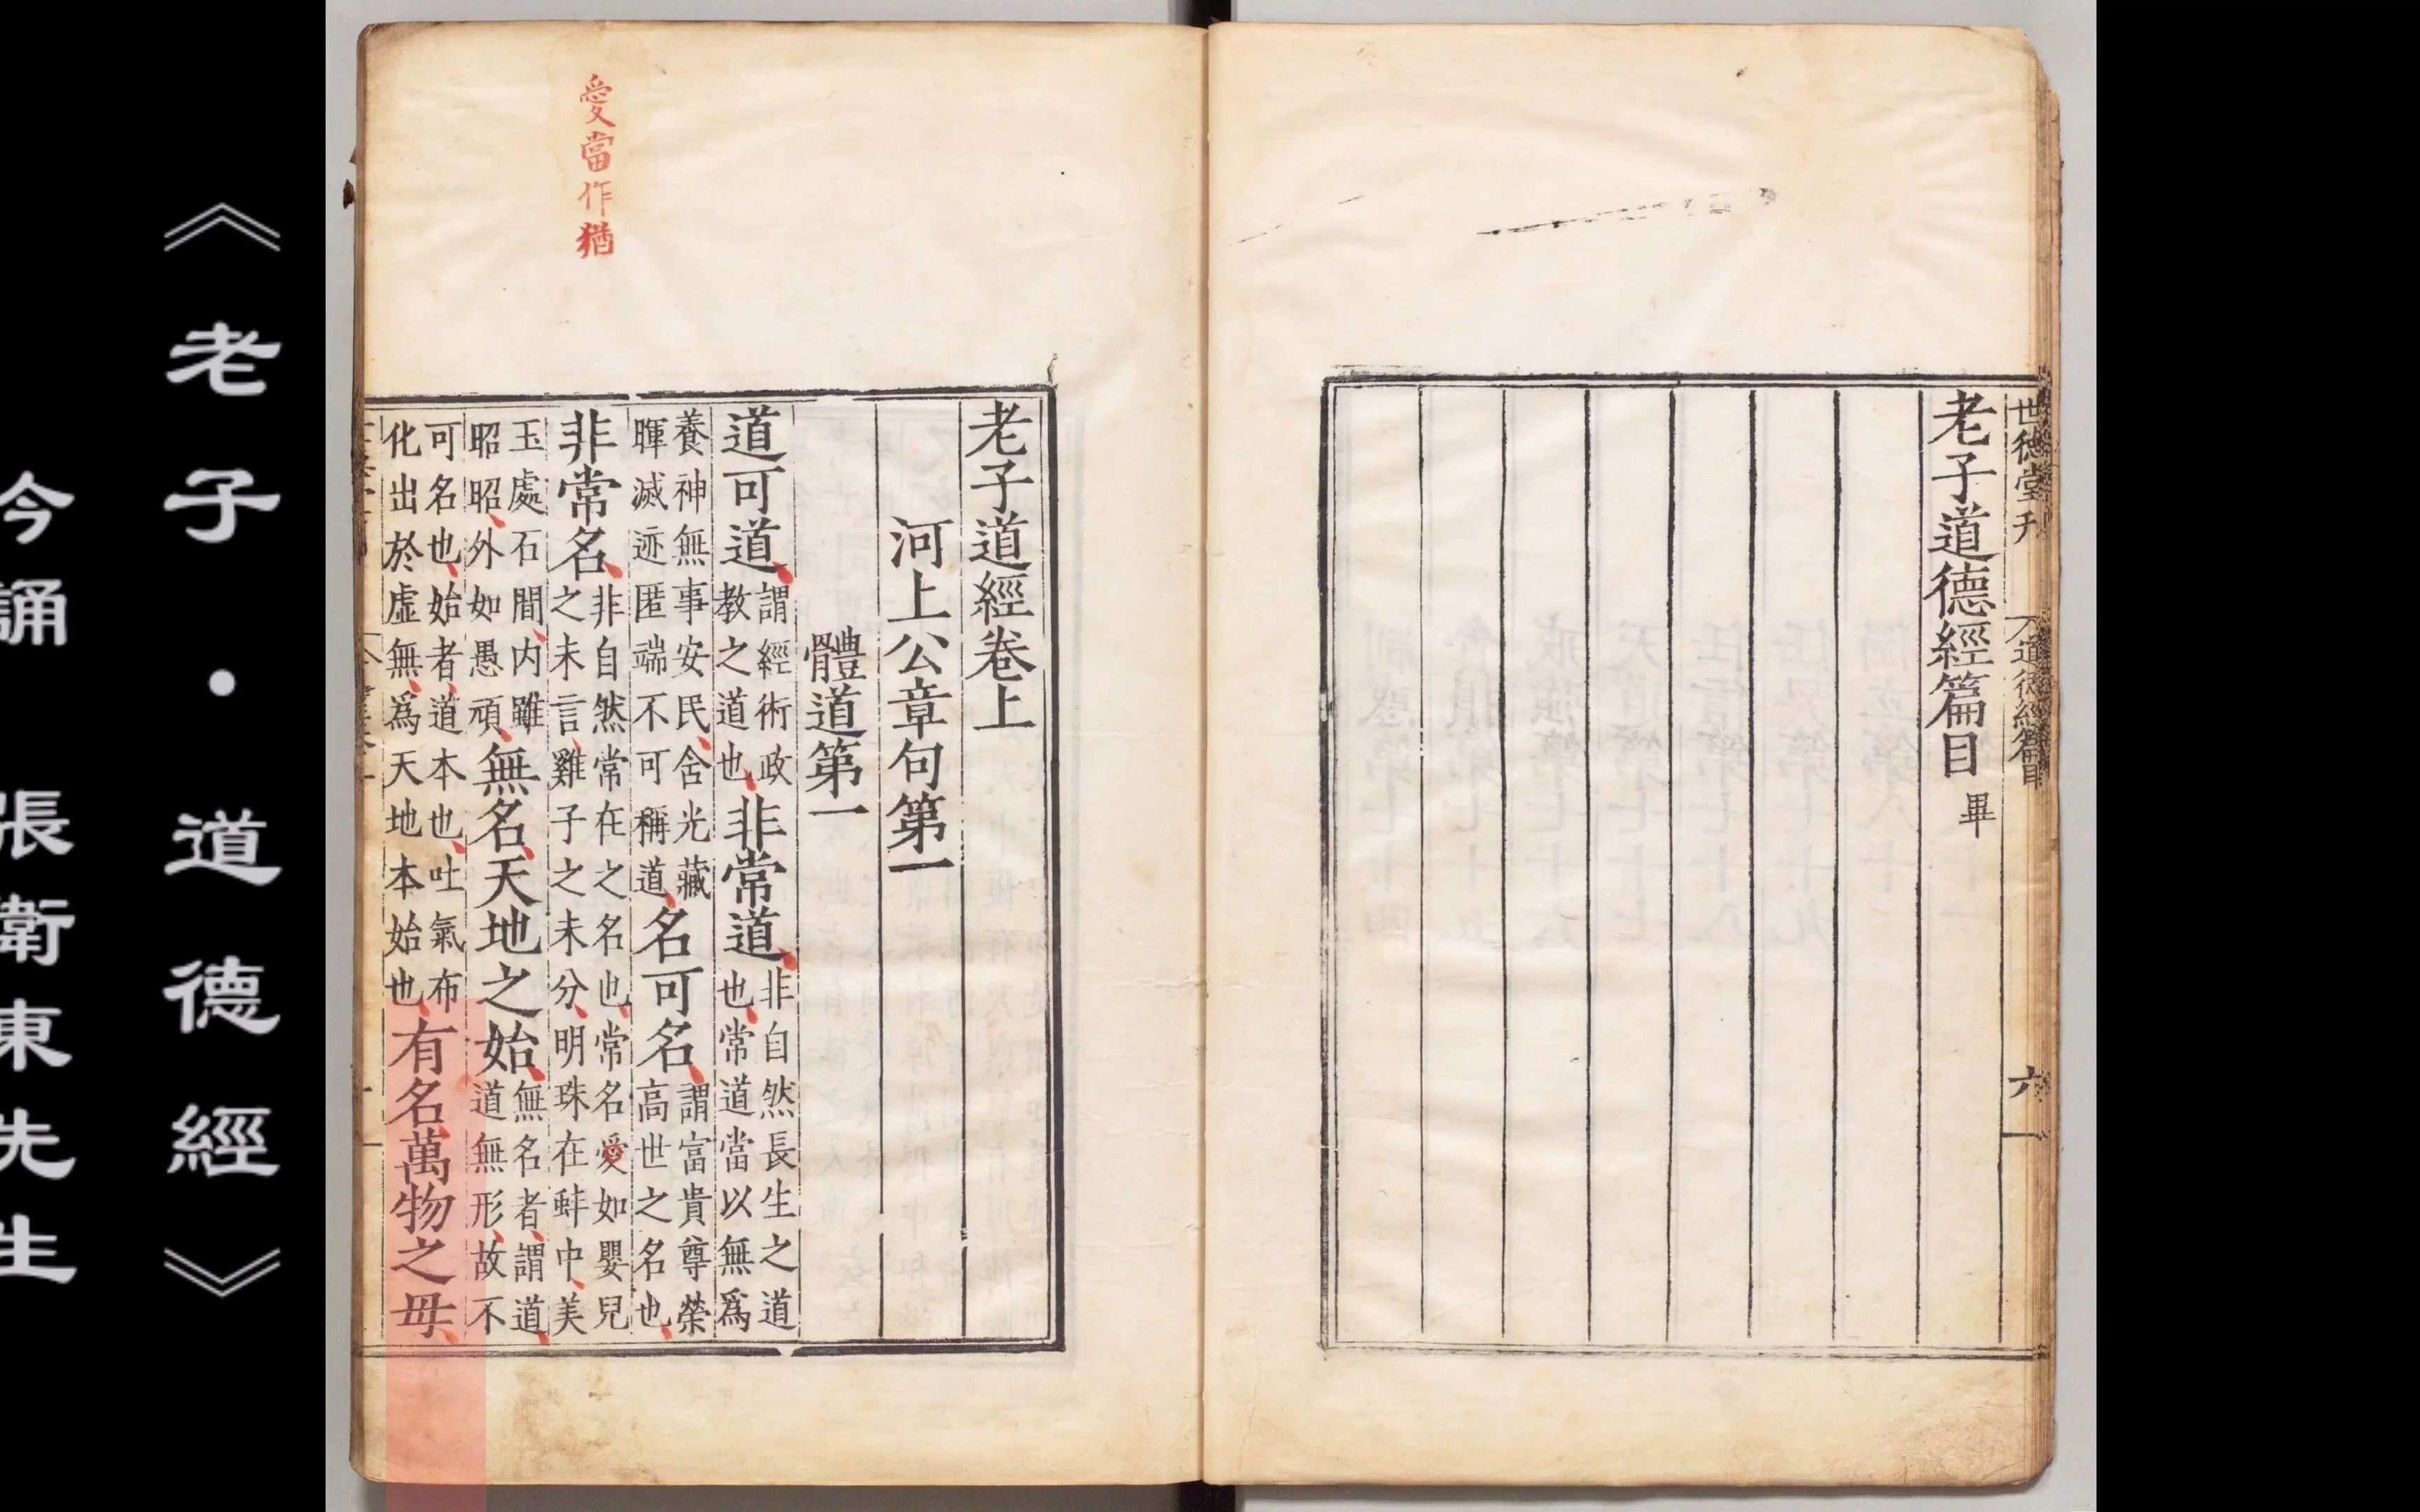 世德堂刊
道德經篇目
六
老子道德經篇目 畢
愛當作猶
老子道經卷上
河上公章句第一
體道第一
道可道 謂經術政教之道也 非常道 非自然長生之道也常道當以無爲
養神無事安民含光藏暉滅迹匿端不可稱道 名可名 謂富貴尊榮高世之名也
非常名 非自然常在之名也常名愛如嬰兒之未言雞子之未分明珠在蚌中美
玉處石間内雖昭昭外如愚頑 無名天地之始 無名者謂道道無形故不
可名也始者道本也吐氣布化出於虛無爲天地本始也 有名萬物之母
《老子·道德經》
今誦 張衛東先生